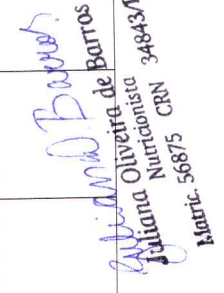 Juliana O Barros
Juliana Oliveira de Barros
Nutricionista
Matric. 56875 CRN 34843/